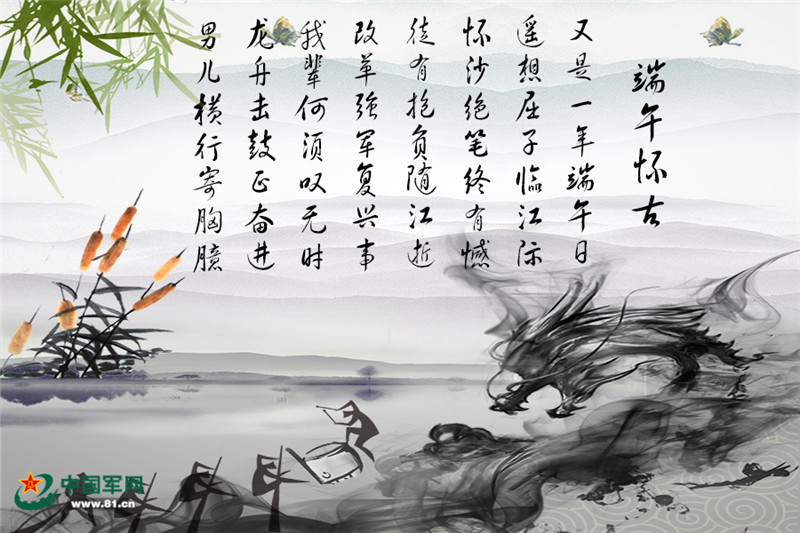 端午怀古
又是一年端午日
遥想屈子临江际
怀沙绝笔终有憾
徒有抱负随江逝
改革强军复兴事
我辈何须叹无时
龙舟击鼓正奋进
男儿横行寄胸臆
中国军网
www.81.cn